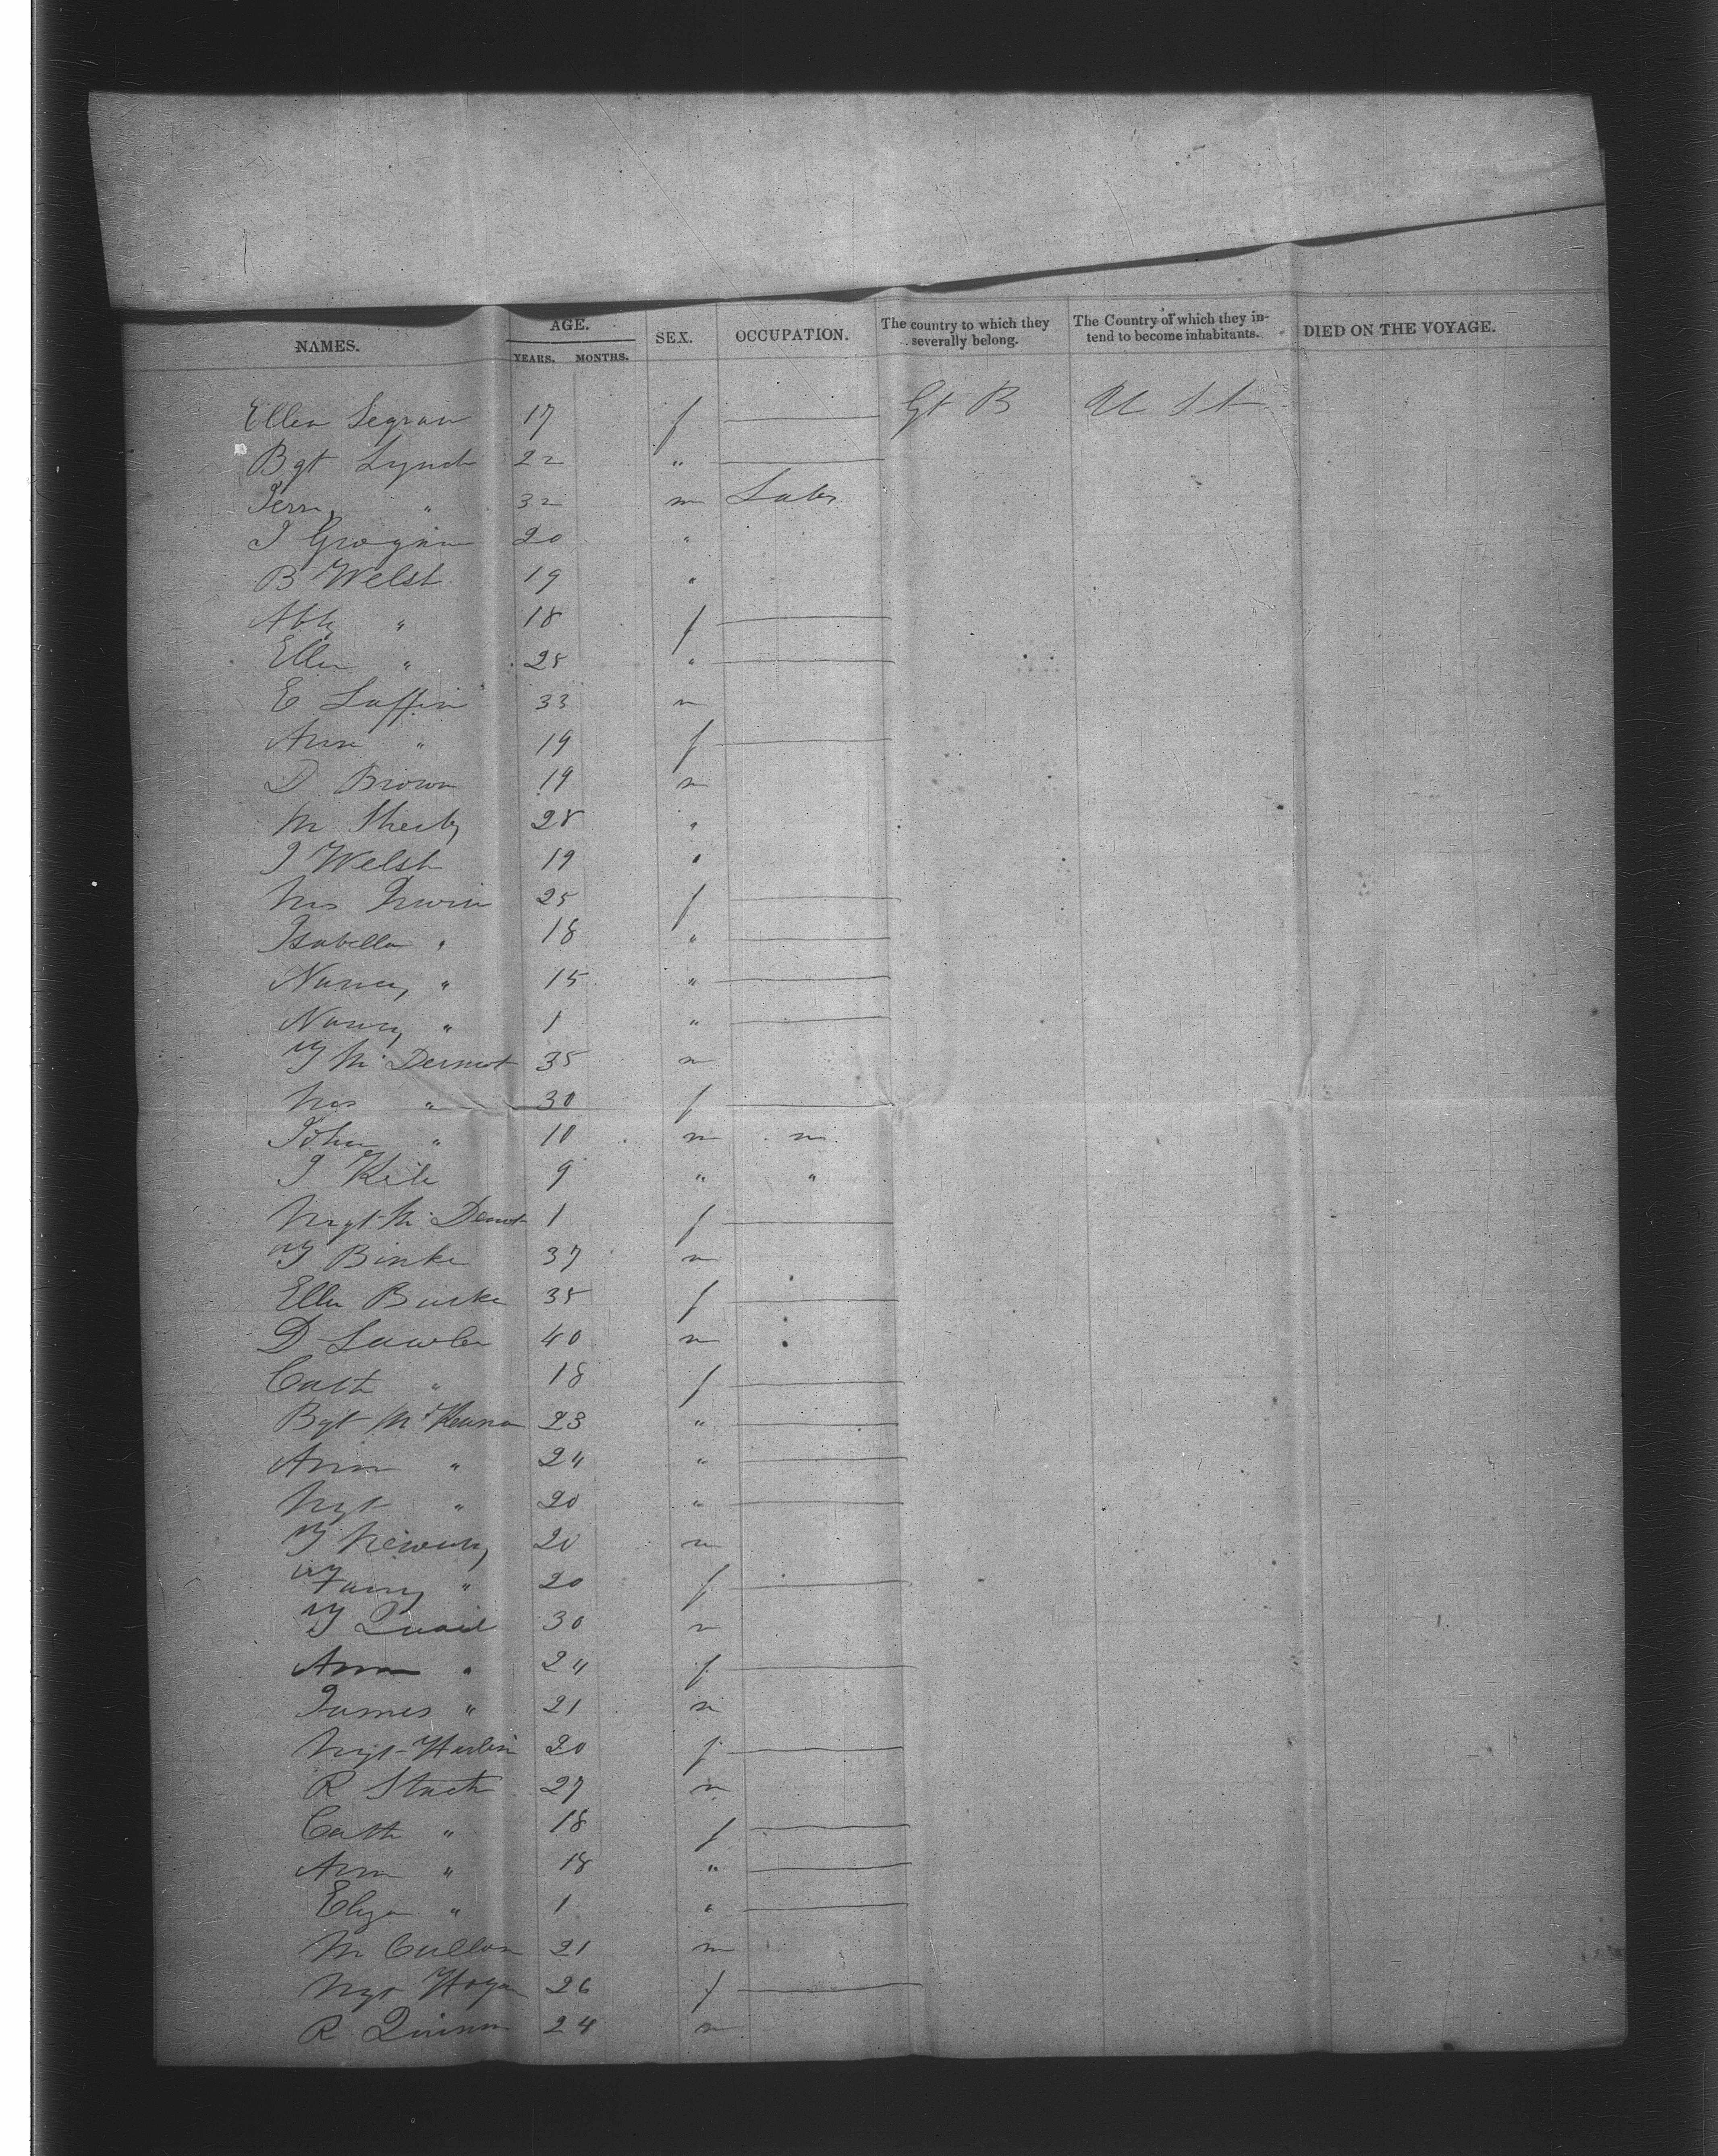 NAMES. AGE. YEARS. MONTHS. SEX. OCCUPATION. The country to which they severally belong. The Country of which they intend to become inhabitants. DIED ON THE VOYAGE.
Ellen Segrau 17 f — Gt B U St
Bgt Lynch 22 " —
Terry " 32 m Labr
J Grogan 20 "
B Welsh 19 "
Abby " 18 f —
Ellen " 25 " —
E Laffin 33 m
Ann " 19 f —
D Brown 19 m
M Sheehy 28 "
J Welsh 19 "
Mrs Irwin 25 f —
Isabella " 18 " —
Nancy " 15 " —
Nancy " 1 " —
M McDermot 35 m
Mrs " 30 f —
John " 10 m
J Kile 9 " "
Mrgt McDermot 1 f —
Burke 37 m
Ellen Burke 35 f —
D Lawler 40 m
Cath " 18 f —
Bgt McKenna 23 " —
Ann " 24 " —
Mgt " 20 " —
20 m
Fanny " 20 f —
Quaid 30 m
Ann " 24 f —
James " 21 m
Mgt Harlin 20 f —
R Stack 27 m
Cath " 18 f —
Ann " 18 " —
Eliza " 1 " —
M Cullon 21 m
Mgt Hogan 26 f —
R Quinn 24 m